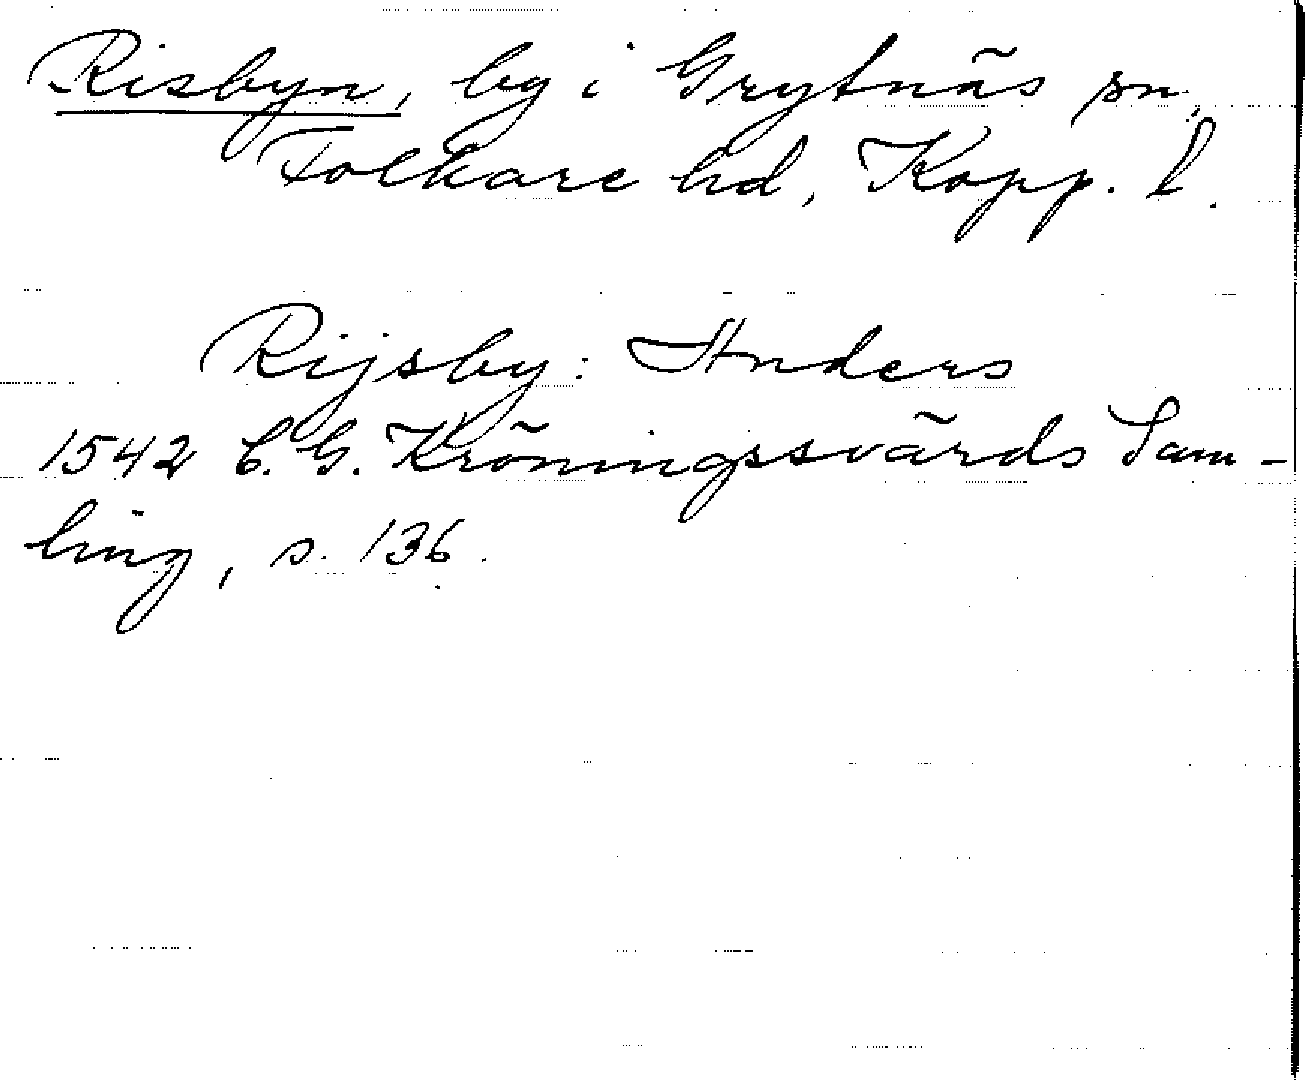 Risbyn, by i Grytnäs sn,
Folkare hd, Kopp. l.
Rijsby: Anders
1542 C. G. Kröningssvärds Sam-
ling, s. 136.